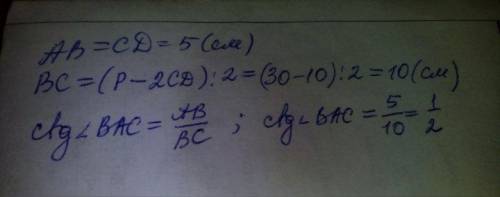 AB = CD = 5 (см)
BC = (P - 2CD) : 2 = (30 - 10) : 2 = 10 (см)
ctg ∠ BAC = AB/BC ; ctg ∠ BAC = 5/10 = 1/2